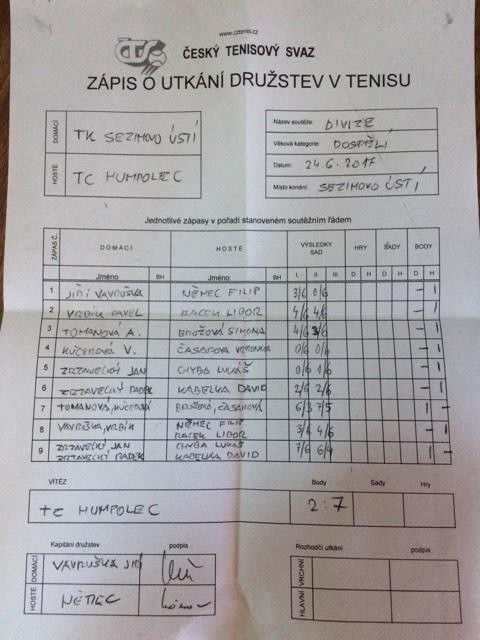 www.cztenis.cz
ČTS ČESKÝ TENISOVÝ SVAZ
ZÁPIS O UTKÁNÍ DRUŽSTEV V TENISU
DOMÁCÍ TK SEZIMOVO ÚSTÍ
HOSTÉ TC HUMPOLEC
Název soutěže: DIVIZE
Věková kategorie: DOSPĚLÍ
Datum: 24.6.2017
Místo konání: SEZIMOVO ÚSTÍ
Jednotlivé zápasy v pořadí stanoveném soutěžním řádem
ZÁPAS Č. DOMÁCÍ HOSTÉ VÝSLEDKY SAD HRY SADY BODY
Jméno BH Jméno BH I. II. III. D H D H D H
1 JIŘÍ VAVRUŠKA NĚMEC FILIP 3/6 0/6 - 1
2 VRBÍK PAVEL RACEK LIBOR 4/6 4/6 - 1
3 TOMANOVÁ A. BROŽOVÁ SIMONA 4/6 3/6 - 1
4 KUČEROVÁ V. ČASAROVA VERONIKA 0/6 0/6 - 1
5 ZRZAVECKÝ JAN CHYBA LUKÁŠ 0/6 1/6 - 1
6 ZRZAVECKÝ RADEK KABELKA DAVID 2/6 2/6 - 1
7 TOMANOVÁ, KUČEROVÁ BROŽOVÁ, ČASAROVÁ 6/3 7/5 1 -
8 VAVRUŠKA, VRBÍK NĚMEC FILIP RACEK LIBOR 3/6 4/6 - 1
9 ZRZAVECKÝ JAN ZRZAVECKÝ RADEK CHYBA LUKÁŠ KABELKA DAVID 7/6 6/4 1 -
VÍTĚZ Body Sady Hry
TC HUMPOLEC 2:7
Kapitáni družstev podpis
DOMÁCÍ VAVRUŠKA JIŘÍ
HOSTÉ NĚMEC
Rozhodčí utkání podpis
VRCHNÍ
HLAVNÍ